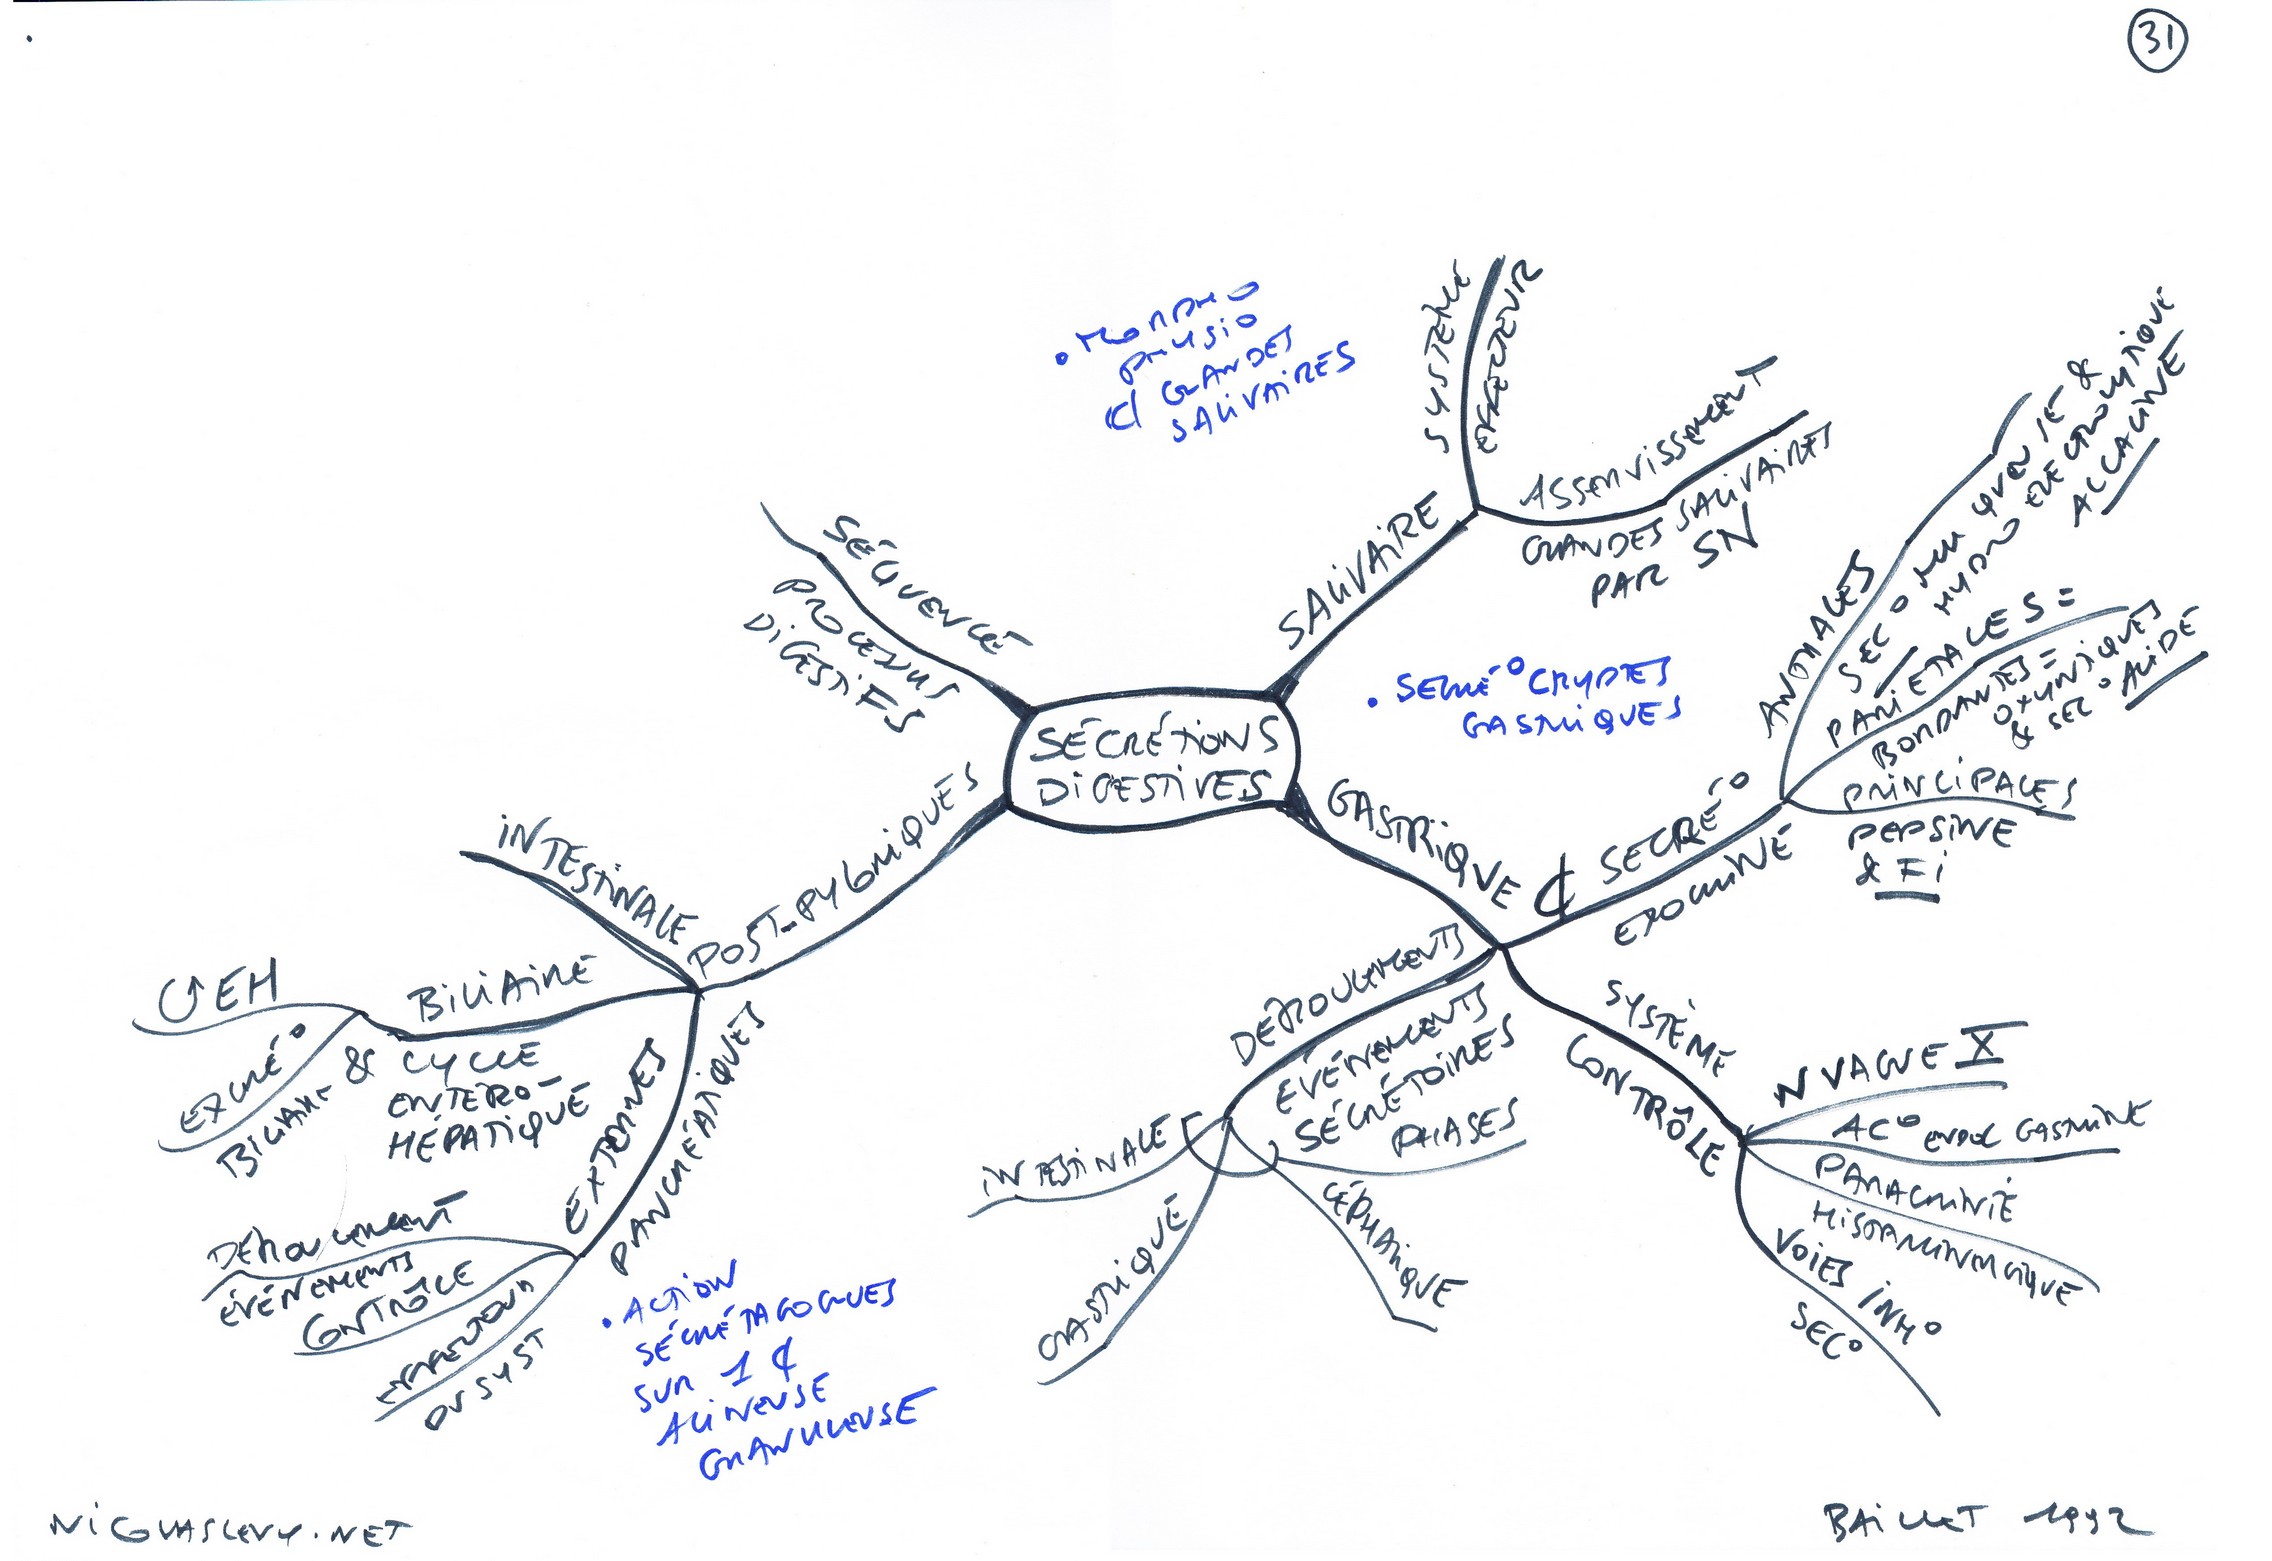 31
SÉCRÉTIONS
DIGESTIVES
SÉQUENCE
PROCESSUS
DIGESTIFS
• MORPHO
PHYSIO
GLANDES
SALIVAIRES
SALIVAIRE
SYSTÈME
EFFECTEUR
ASSERVISSEMENT
GLANDES SALIVAIRES
PAR SN
• SÉCRÉ° CRYPTES
GASTRIQUES
GASTRIQUE
₵ SÉCRÉ°
EXOCRINE
ANTRALES
SEC° MUQUEUSE &
HYDRO ÉLECTROLYTIQUE
ALCALINE
PARIÉTALES =
BORDANTES =
OXYNTIQUES
& SEC° ACIDE
PRINCIPALES
PEPSINE
& Fi
SYSTÈME
CONTRÔLE
N VAGUE X
AC° ENDOC GASTRINE
PARACRINIE
HISTAMINERGIQUE
VOIES INH°
SEC°
DÉROULEMENTS
ÉVÉNEMENTS
SÉCRÉTOIRES
PHASES
CÉPHALIQUE
GASTRIQUE
INTESTINALE
POST-PYLORIQUES
INTESTINALE
BILIAIRE
& CYCLE
ENTÉRO-
HÉPATIQUE
EH
EXCRÉ°
BILIAIRE
EXTERNES
PANCRÉATIQUES
DÉROULEMENT
ÉVÉNEMENTS
CONTRÔLE
EFFECTEUR
DU SYST
• ACTION
SÉCRÉTAGOGUES
SUR 1 ₵
ACINEUSE
GRANULEUSE
NICOLASLEVY.NET
BAILLET 1992